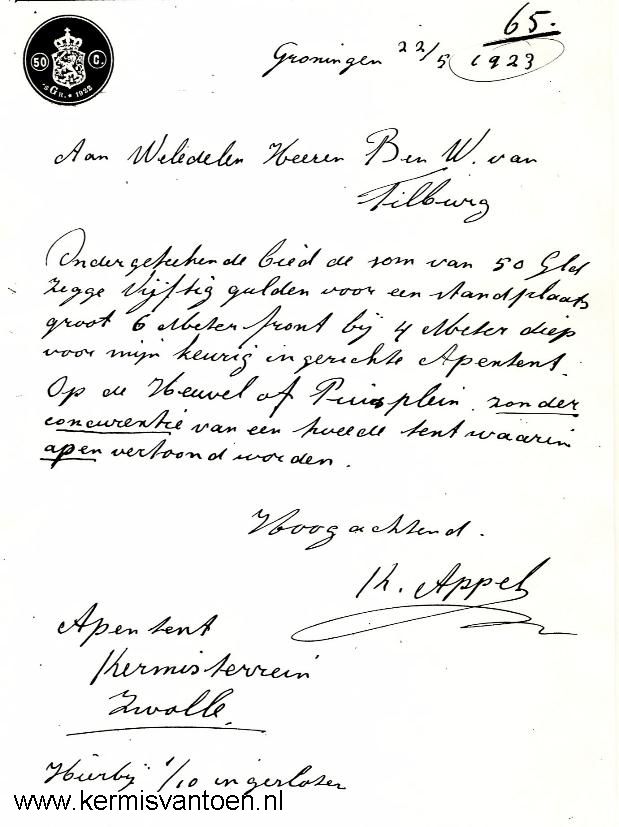 65.
50 C.
'sGR. • 1922
Groningen 22/5 1923
Aan Weledelen Heeren B en W. van
Tilburg
Ondergeteekende bied de som van 50 Gld
Zegge Vijftig gulden voor een standplaats
groot 6 Meter front bij 4 Meter diep
voor mijn keurig ingerichte Apentent.
Op de Heuvel of Piusplein. zonder
concurentie van een tweede tent waarin
apen vertoond worden.
Hoogachtend.
K. Appel
Apentent
Kermisterrein
Zwolle.
Hierbij 1/10 ingesloten
www.kermisvantoen.nl